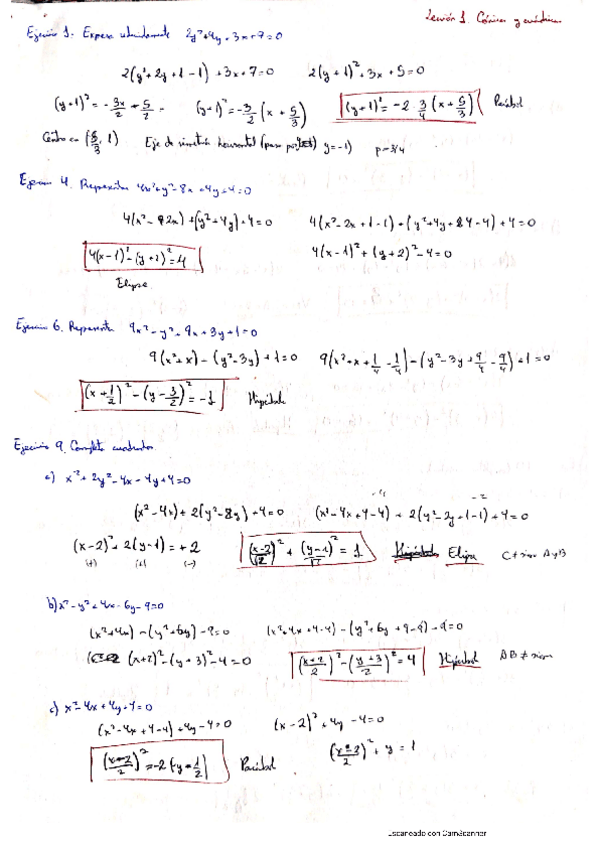 Lección 1. Cónicas y cuádricas
Ejercicio 1. Expresa reducidamente 2y²+4y+3x+7=0
2(y²+2y+1-1)+3x+7=0 2(y+1)²+3x+5=0
(y+1)²=-3x/2+5/2 (y+1)²=-3/2(x+5/3) (y+1)²=-2·3/4(x+5/3) Parábola
Centro en (5/3, 1) Eje de simetría horizontal (pasa por y=-1) p=3/4
Ejercicio 4. Representa 4x²+y²-8x+4y+4=0
4(x²-2x)+(y²+4y)+4=0 4(x²-2x+1-1)+(y²+4y+4-4)+4=0
4(x-1)²-(y+2)²=4 4(x-1)²+(y+2)²-4=0
Elipse
Ejercicio 6. Representa 9x²-y²+9x+3y+1=0
9(x²+x)-(y²-3y)+1=0 9(x²+x+1/4-1/4)-(y²-3y+9/4-9/4)+1=0
(x+1/2)²-(y-3/2)²=-1 Hipérbola
Ejercicio 9. Completa cuadrados
a) x²+2y²-4x-4y+4=0
-4 -2
(x²-4x)+2(y²-8y)+4=0 (x²-4x+4-4)+2(y²-2y+1-1)+4=0
(x-2)²+2(y-1)=+2 (x-2/√2)²+(y-1)²/√1=1 Elipse C≠ signo A y B
(+) (+) (-)
b) x²-y²+4x-6y-9=0
(x²+4x)-(y²+6y)-9=0 (x²+4x+4-4)-(y²+6y+9-9)-9=0
(x+2)²-(y+3)²-4=0 (x+2/2)²-(y+3/2)²=4 Hipérbola AB≠signo
c) x²-4x+4y+4=0
(x²-4x+4-4)+4y-4=0 (x-2)²+4y-4=0
(x-2/2)²=-2(y-1/2) Parábola (x-2/2)²+y=1
Escaneado con CamScanner